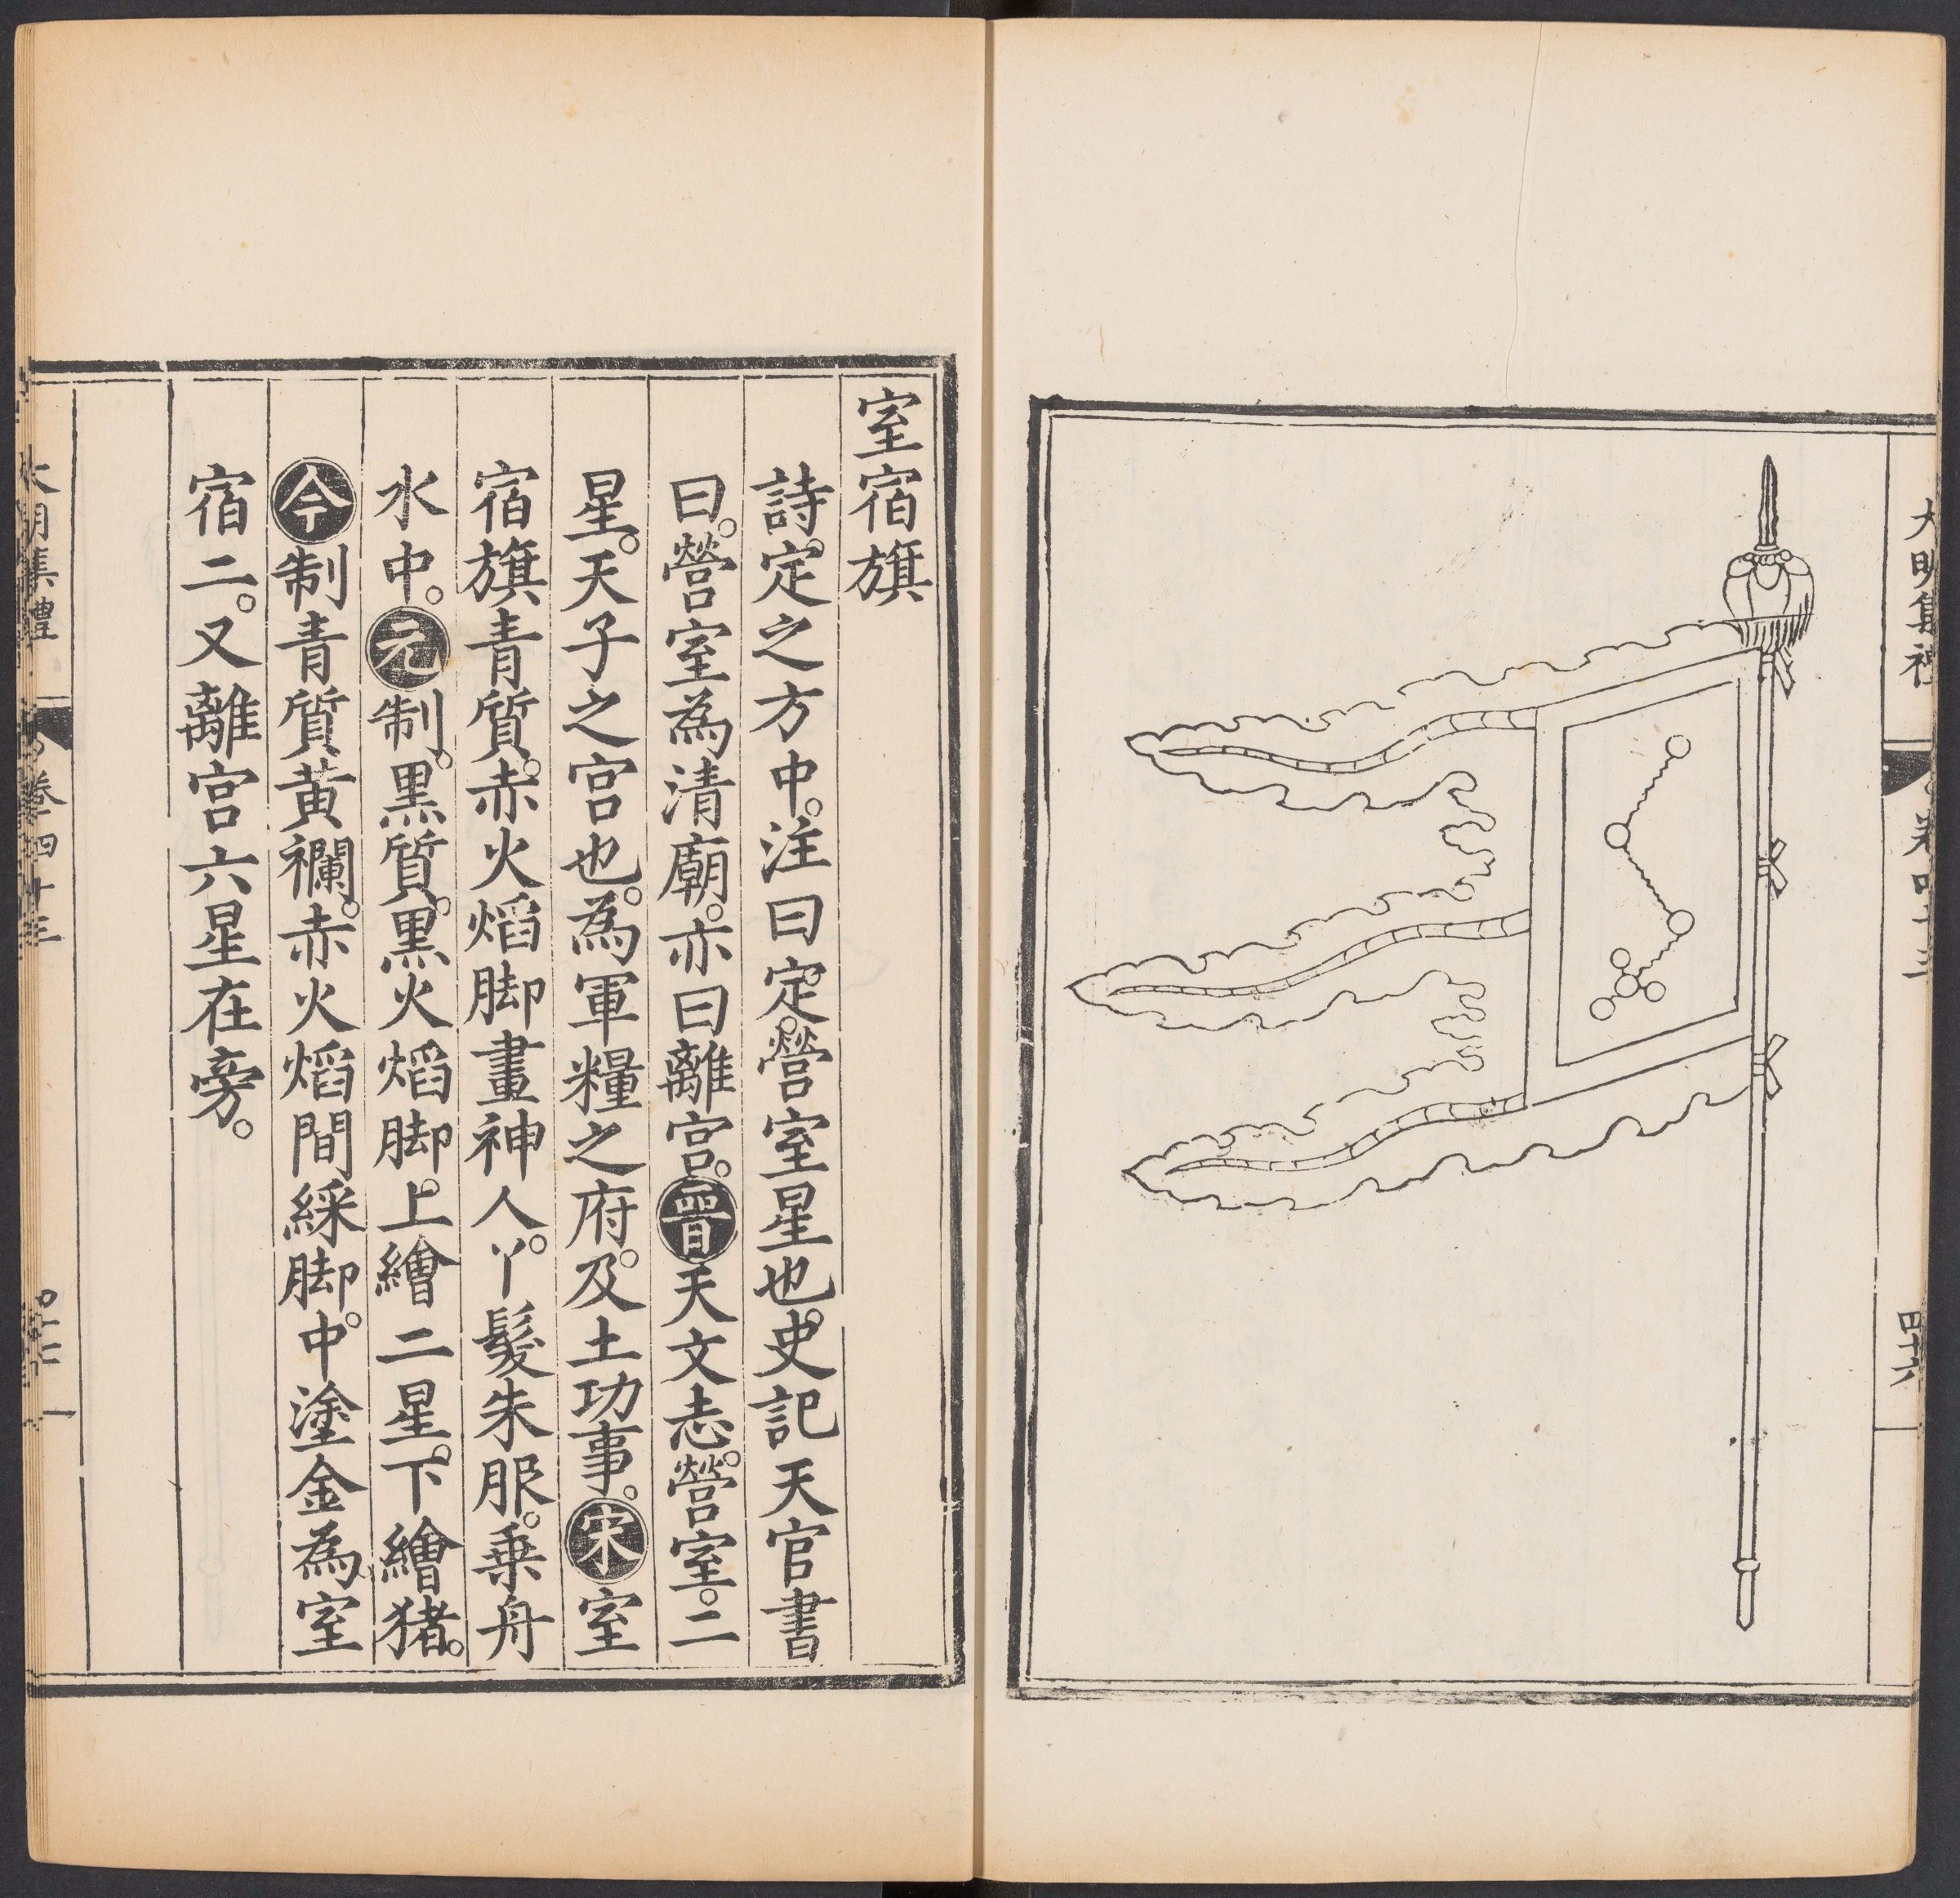 大明集禮
卷四十三
四十六
室宿旗
詩。定之方中。注曰。定。營室星也。史記天官書
曰。營室為清廟。亦曰離宮。晉天文志。營室。二
星。天子之宮也。為軍糧之府。及土功事。宋室
宿旗青質。赤火熖脚畫神人。丫髮朱服。乗舟
水中。元制。黒質。黒火熖脚。上繪二星。下繪猪。
今制青質黃襴。赤火熖間綵脚。中塗金為室
宿二。又離宮六星在旁。
大明集禮
卷四十三